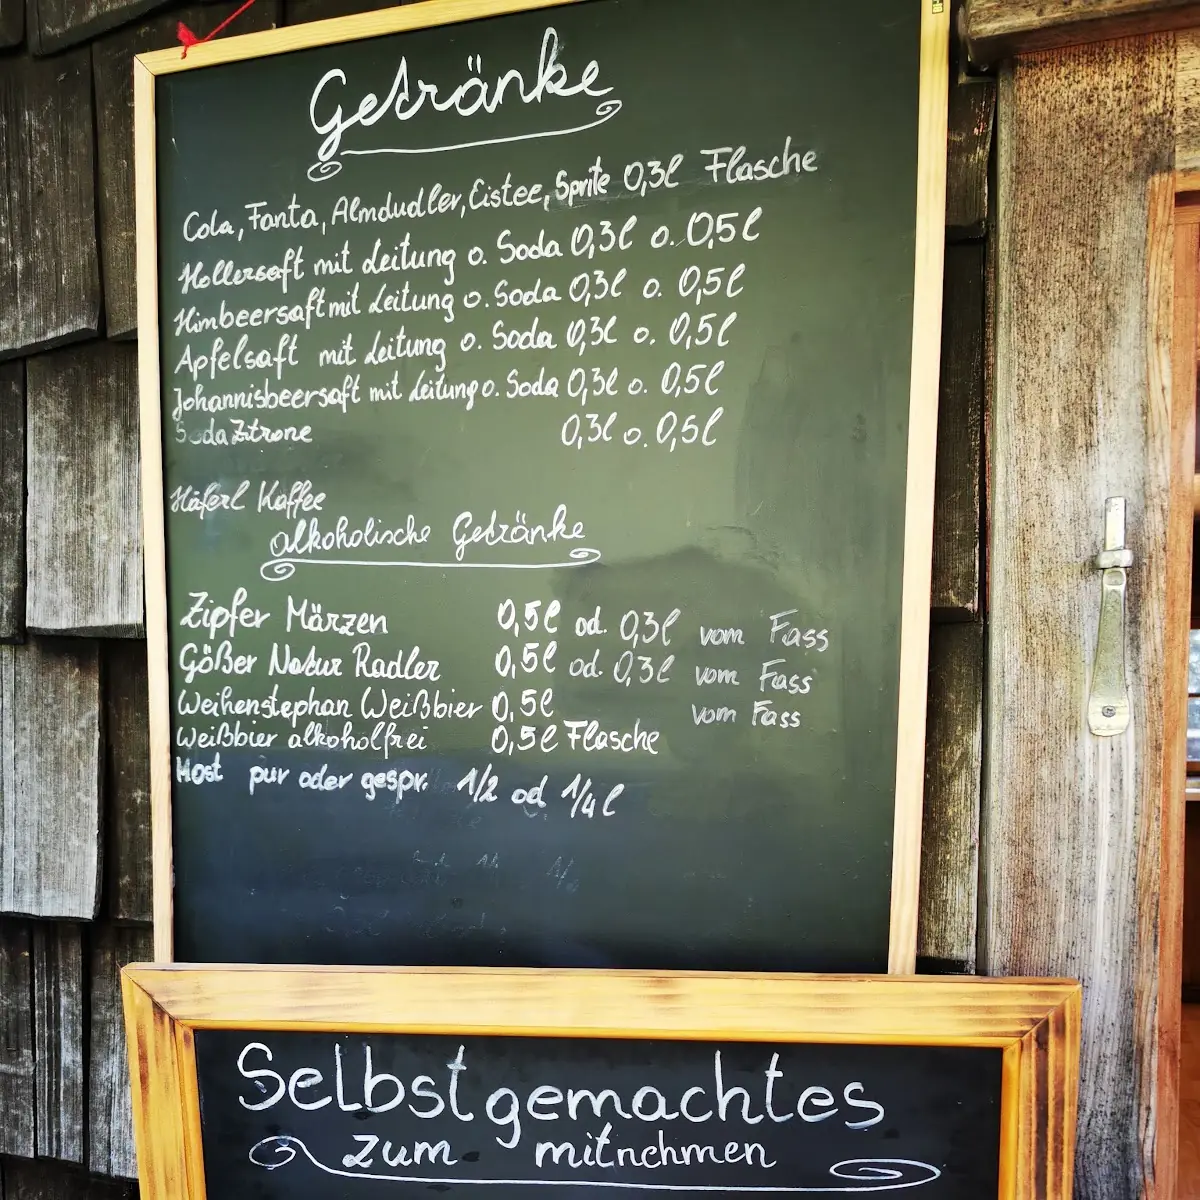 Getränke
Cola, Fanta, Almdudler, Eistee, Sprite 0,3l Flasche
Hollersaft mit Leitung o. Soda 0,3l o. 0,5l
Himbeersaft mit Leitung o. Soda 0,3l o. 0,5l
Apfelsaft mit Leitung o. Soda 0,3l o. 0,5l
Johannisbeersaft mit Leitung o. Soda 0,3l o. 0,5l
Soda Zitrone 0,3l o. 0,5l
Häferl Kaffee
alkoholische Getränke
Zipfer Märzen 0,5l od. 0,3l vom Fass
Gößer Natur Radler 0,5l od. 0,3l vom Fass
Weihenstephan Weißbier 0,5l vom Fass
Weißbier alkoholfrei 0,5l Flasche
Most pur oder gespr. 1/2 od 1/4l
Selbstgemachtes
zum mitnehmen